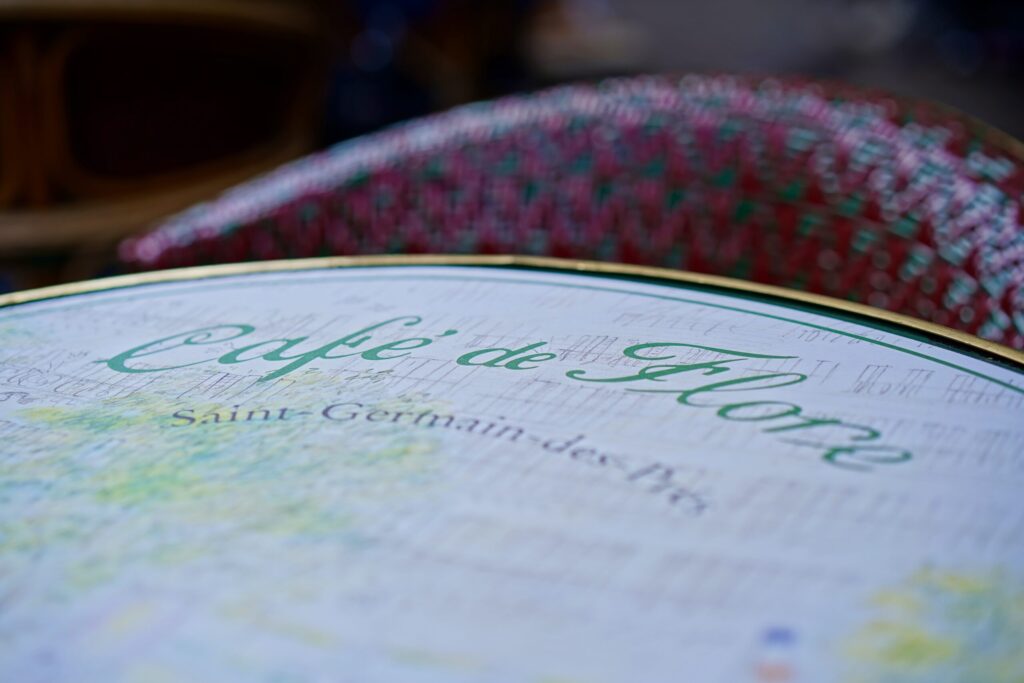 Café de Flore
Saint-Germain-des-Prés